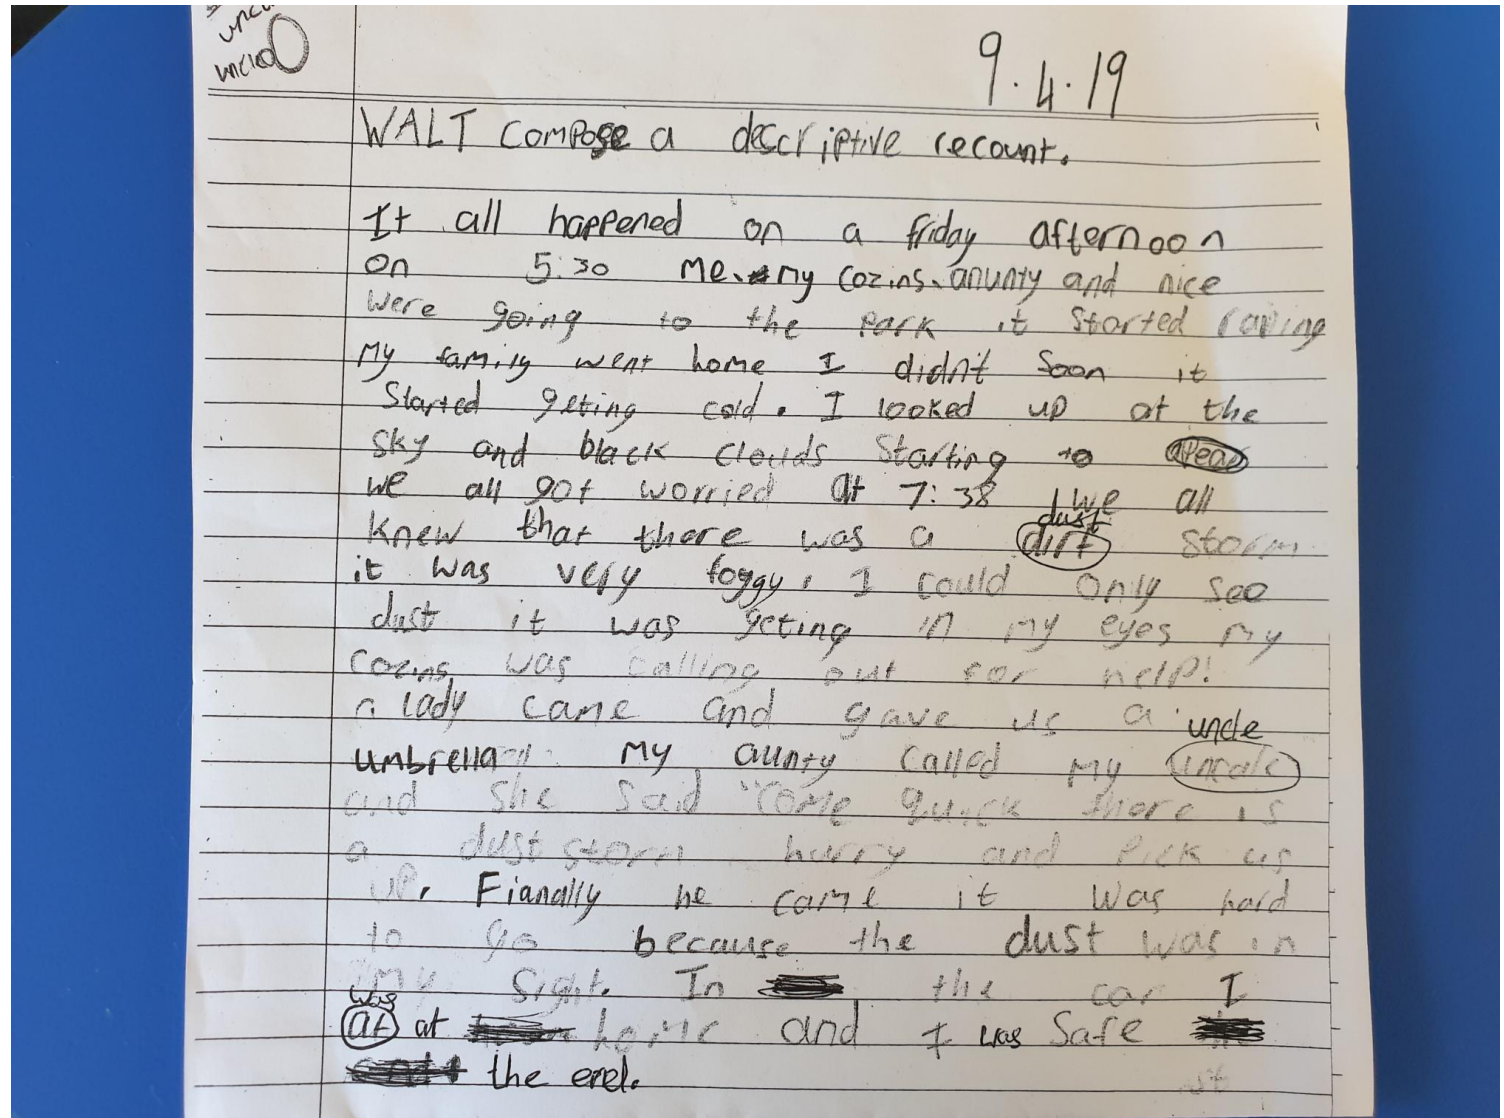 uncle
9.4.19
WALT compose a descriptive recount.
It all happened on a friday afternoon
on 5:30 me. my cozins. anunty and nice
were going to the park it started raping
my family went home I didn't Soon it
Started geting cold. I looked up at the
sky and black clouds starting to apear
we all got worried at 7:38 we all
dust
knew that there was a dirt storm
it was very foggy. I could only see
dust it was geting in my eyes my
cozins was calling out for help!
a lady came and gave us a uncle
umbrella my aunty called my uncale
and she said "come quick there is
a dust storm hurry and pick us
up. Fianally he came it was hard
to go because the dust was in
my sight. In the car I
was
at at home and I was Safe
the end.